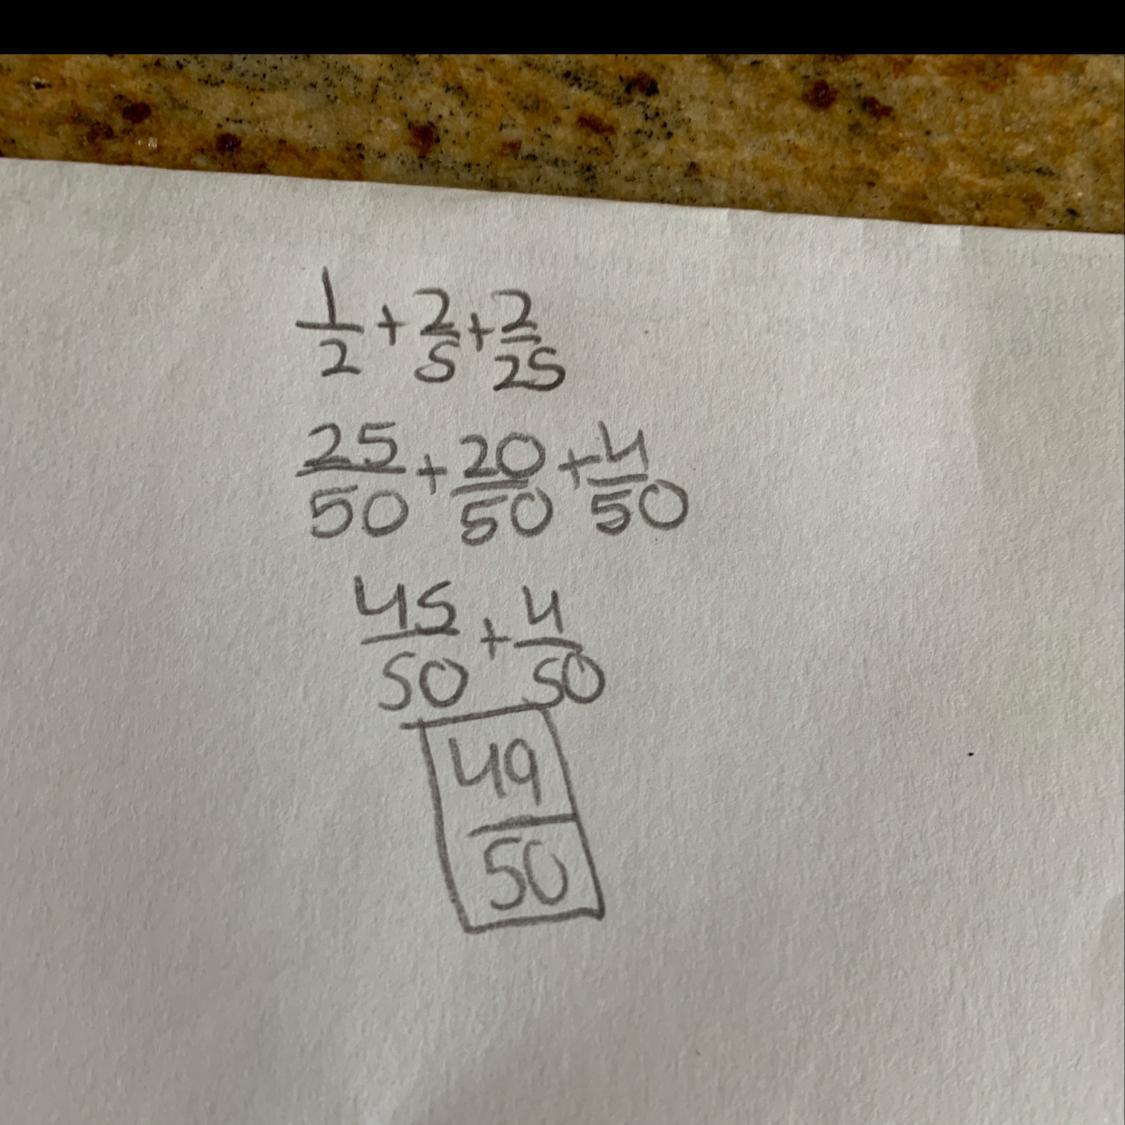 1/2 + 2/5 + 2/25
25/50 + 20/50 + 4/50
45/50 + 4/50
49/50